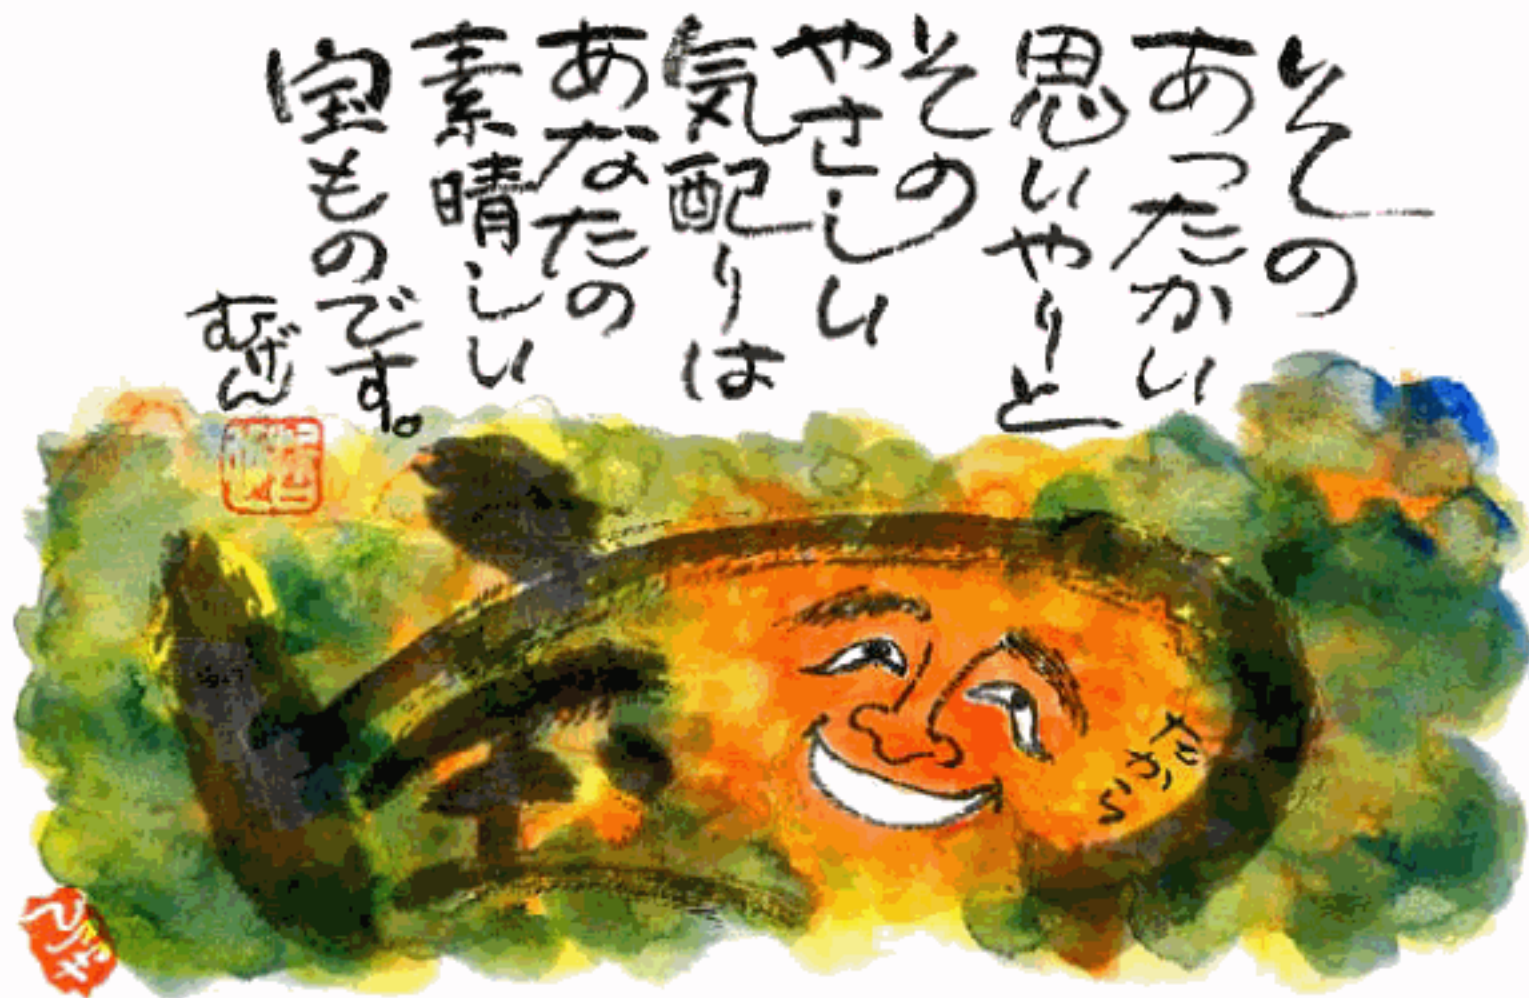 その
あったかい
思いやりと
その
やさしい
気配りは
あなたの
素晴しい
宝ものです。
むげん
宝
たから